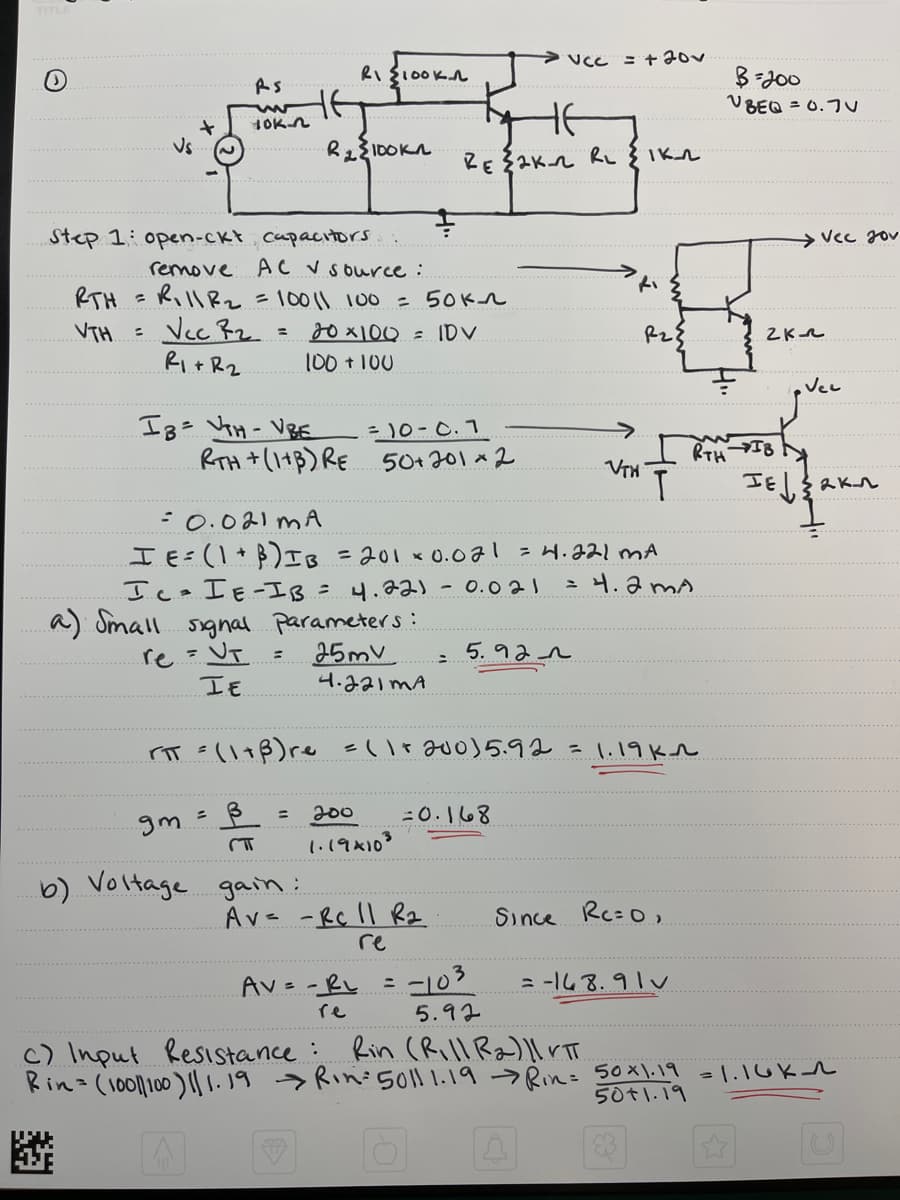 ①
RS
10K Ω
+
Vs
-
R1 100KΩ
R2 100KΩ
VCC = +20V
β=200
VBEQ = 0.7V
RE 2KΩ RL 1KΩ
Step 1: open-ckt capacitors
remove AC V source :
RTH = R1 || R2 = 100 || 100 = 50KΩ
VTH = Vcc R2 / R1 + R2 = 20 x 100 / 100 + 100 = 10V
Vcc 20V
R1
R2
2KΩ
IB = VTH - VBE / RTH + (1+β) RE = 10 - 0.7 / 50 + 201 x 2
Vcc
VTH
RTH → IB
IE ↓ 2KΩ
= 0.021 mA
IE = (1+β)IB = 201 x 0.021 = 4.221 mA
Ic = IE - IB = 4.221 - 0.021 = 4.2 mA
a) Small signal parameters :
re = VT / IE = 25mV / 4.221mA = 5.92 Ω
rπ = (1+β)re = (1+200)5.92 = 1.19KΩ
gm = β / rπ = 200 / 1.19x10³ = 0.168
b) Voltage gain :
Av = -Rc || R2 / re Since Rc=0,
Av = -RL / re = -10³ / 5.92 = -168.91v
c) Input Resistance : Rin (R1 || R2) || rπ
Rin = (100||100) || 1.19 → Rin = 50 || 1.19 → Rin = 50x1.19 / 50+1.19 = 1.16KΩ